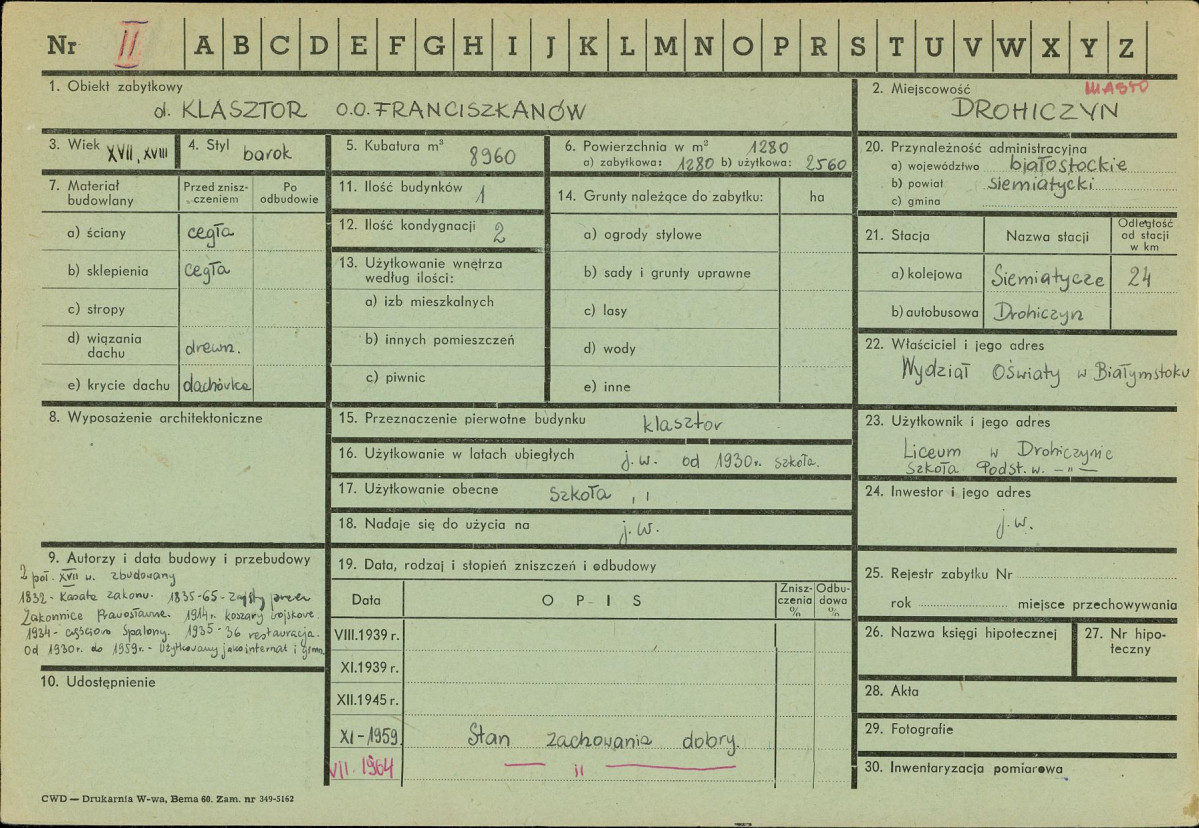 Nr II A B C D E F G H I J K L M N O P R S T U V W X Y Z
1. Obiekt zabytkowy
d. KLASZTOR O.O. FRANCISZKANÓW
2. Miejscowość MIASTO
DROHICZYN
3. Wiek XVII, XVIII
4. Styl barok
5. Kubatura m³ 8960
6. Powierzchnia w m² 1280
a) zabytkowa: 1280 b) użytkowa: 2560
20. Przynależność administracyjna
a) województwo białostockie
b) powiat siemiatycki
c) gmina
7. Materiał budowlany
Przed zniszczeniem
Po odbudowie
a) ściany cegła
b) sklepienia cegła
c) stropy
d) wiązania dachu drewn.
e) krycie dachu dachówka
11. Ilość budynków 1
12. Ilość kondygnacji 2
13. Użytkowanie wnętrza
według ilości:
a) izb mieszkalnych
b) innych pomieszczeń
c) piwnic
14. Grunty należące do zabytku: ha
a) ogrody stylowe
b) sady i grunty uprawne
c) lasy
d) wody
e) inne
21. Stacja
Nazwa stacji
Odległość od stacji w km
a) kolejowa Siemiatycze 24
b) autobusowa Drohiczyn
22. Właściciel i jego adres
Wydział Oświaty w Białymstoku
8. Wyposażenie architektoniczne
15. Przeznaczenie pierwotne budynku klasztor
16. Użytkowanie w latach ubiegłych j.w. od 1930r. szkoła.
17. Użytkowanie obecne Szkoła
18. Nadaje się do użycia na j.w.
23. Użytkownik i jego adres
Liceum w Drohiczynie
Szkoła Podst. w. —"—
24. Inwestor i jego adres
j.w.
9. Autorzy i data budowy i przebudowy
2 poł. XVII w. zbudowany
1832 - Kasata zakonu. 1835-65 - Zajęty przez
Zakonnice Prawosławne. 1914r. koszary wojskowe.
1934 - częściowo spalony. 1935-36 restauracja.
Od 1930r. do 1959r. - Użytkowany jako internat i gimn.
10. Udostępnienie
19. Data, rodzaj i stopień zniszczeń i odbudowy
Data
OPIS
Zniszczenia %
Odbudowa %
VIII.1939 r.
XI.1939 r.
XII.1945 r.
XI-1959 Stan zachowania dobry.
VII.1964 — " —
25. Rejestr zabytku Nr
rok miejsce przechowywania
26. Nazwa księgi hipotecznej
27. Nr hipoteczny
28. Akta
29. Fotografie
30. Inwentaryzacja pomiarowa
CWD — Drukarnia W-wa, Bema 60. Zam. nr 349-5162